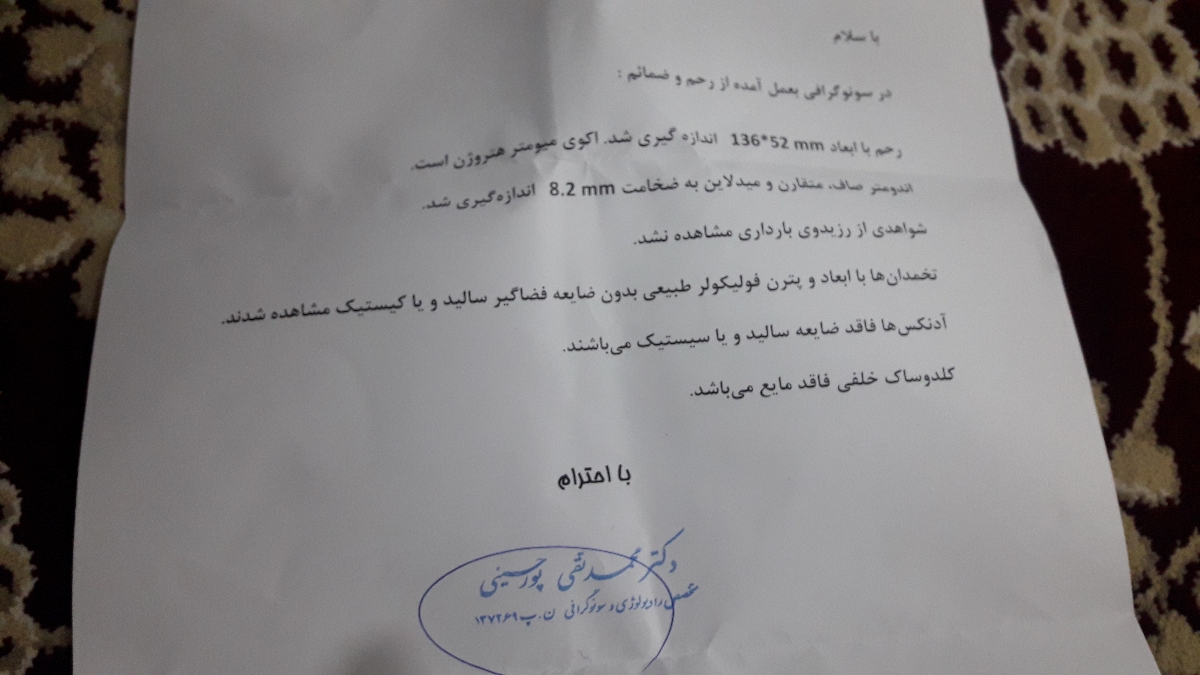 با سلام
در سونوگرافی بعمل آمده از رحم و ضمائم :
رحم با ابعاد 136*52 mm اندازه گیری شد. اکوی میومتر هتروژن است.
اندومتر صاف، متقارن و میدلاین به ضخامت 8.2 mm اندازه‌گیری شد.
شواهدی از رزیدوی بارداری مشاهده نشد.
تخمدان‌ها با ابعاد و پترن فولیکولر طبیعی بدون ضایعه فضاگیر سالید و یا کیستیک مشاهده شدند.
آدنکس‌ها فاقد ضایعه سالید و یا سیستیک می‌باشند.
کلدوساک خلفی فاقد مایع می‌باشد.
با احترام
دکتر محمد تقی پورحسینی
متخصص رادیولوژی و سونوگرافی ن.پ ۱۳۷۲۶۹